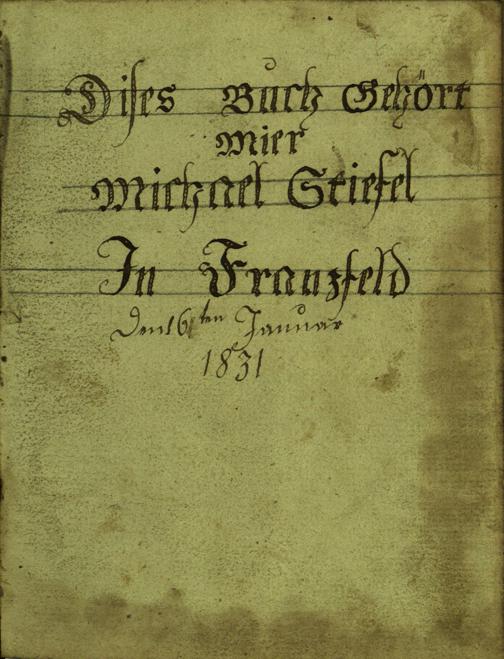 Dises Buch Gehört
Mier
Michael Stiefel
In Franzfeld
Den 16ten Januar
1831